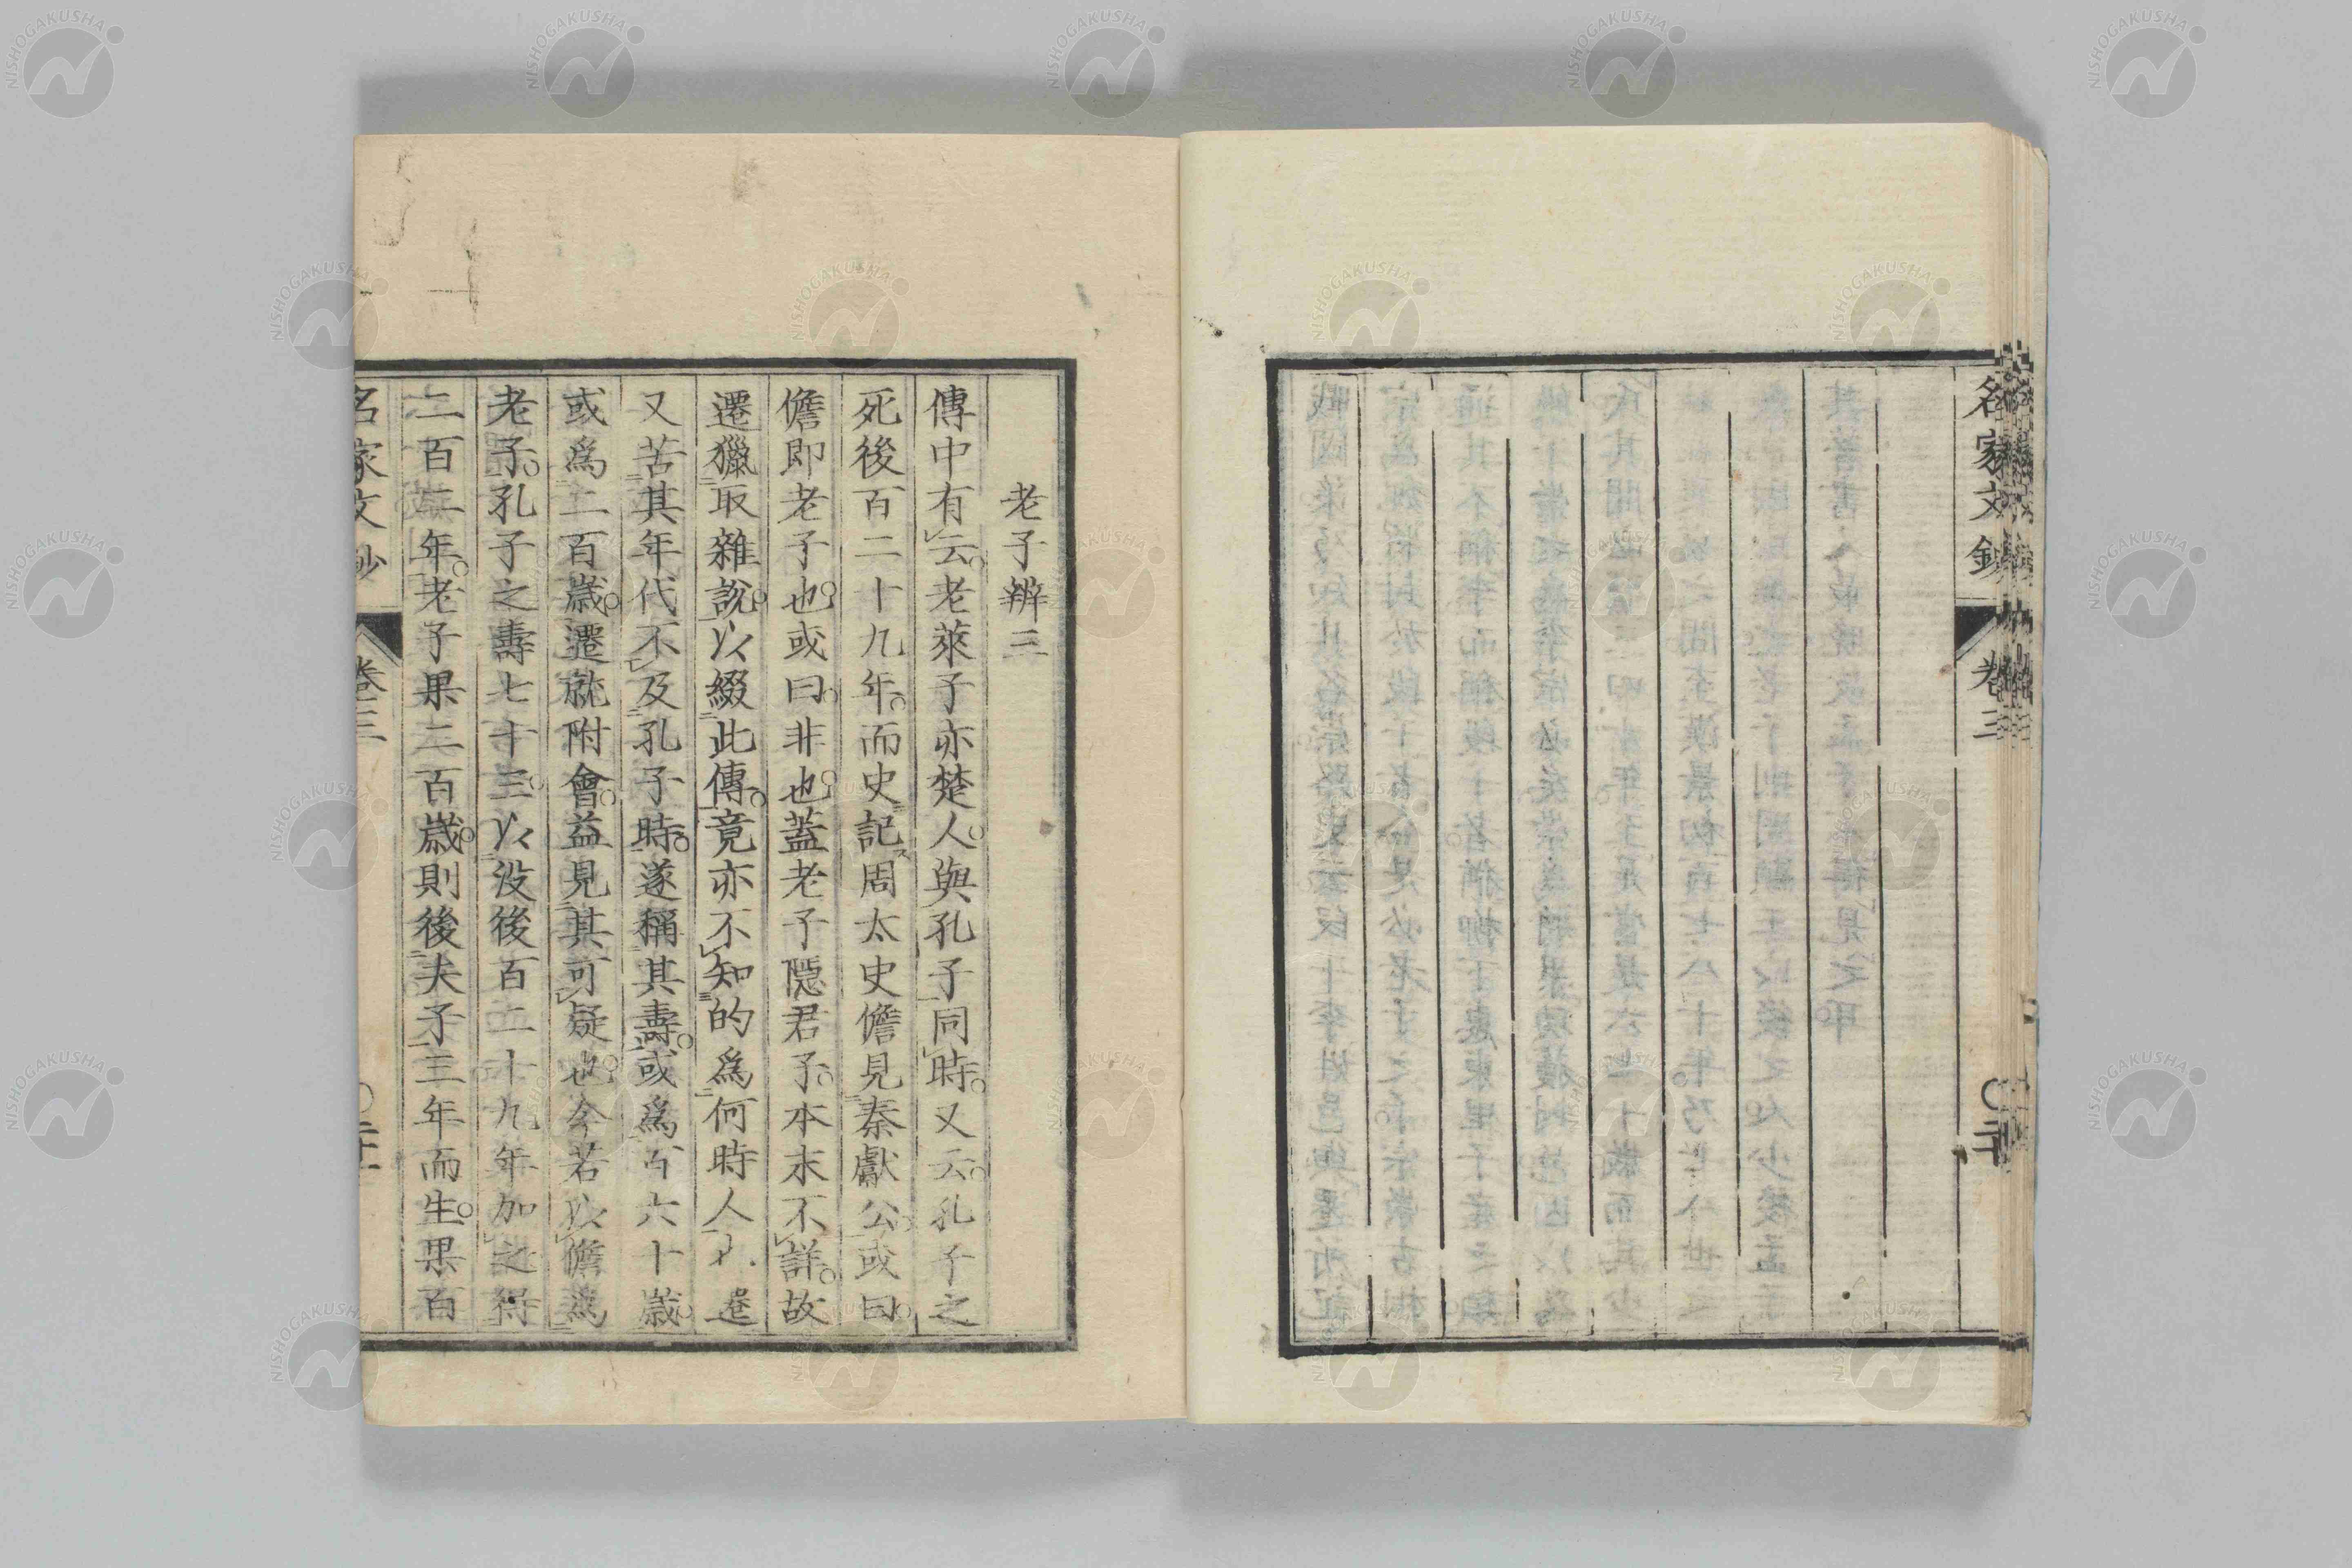 名家文鈔 卷三 〇二十
老子辨三
傳中有云老萊子亦楚人與孔子同時又云孔子之
死後百二十九年而史記周太史儋見秦獻公或曰
儋即老子也或曰非也蓋老子隱君子本末不詳故
遷獵取雜說以綴此傳竟亦不知的爲何時人
又苦其年代不及孔子時遂稱其壽或爲百六十歲
或爲二百歲遷就附會益見其可疑也今若以儋爲
老子孔子之壽七十三以没後百二十九年加之得
二百二年老子果二百歲則後夫子三年而生果百
名家文鈔 卷三
NISHOGAKUSHA